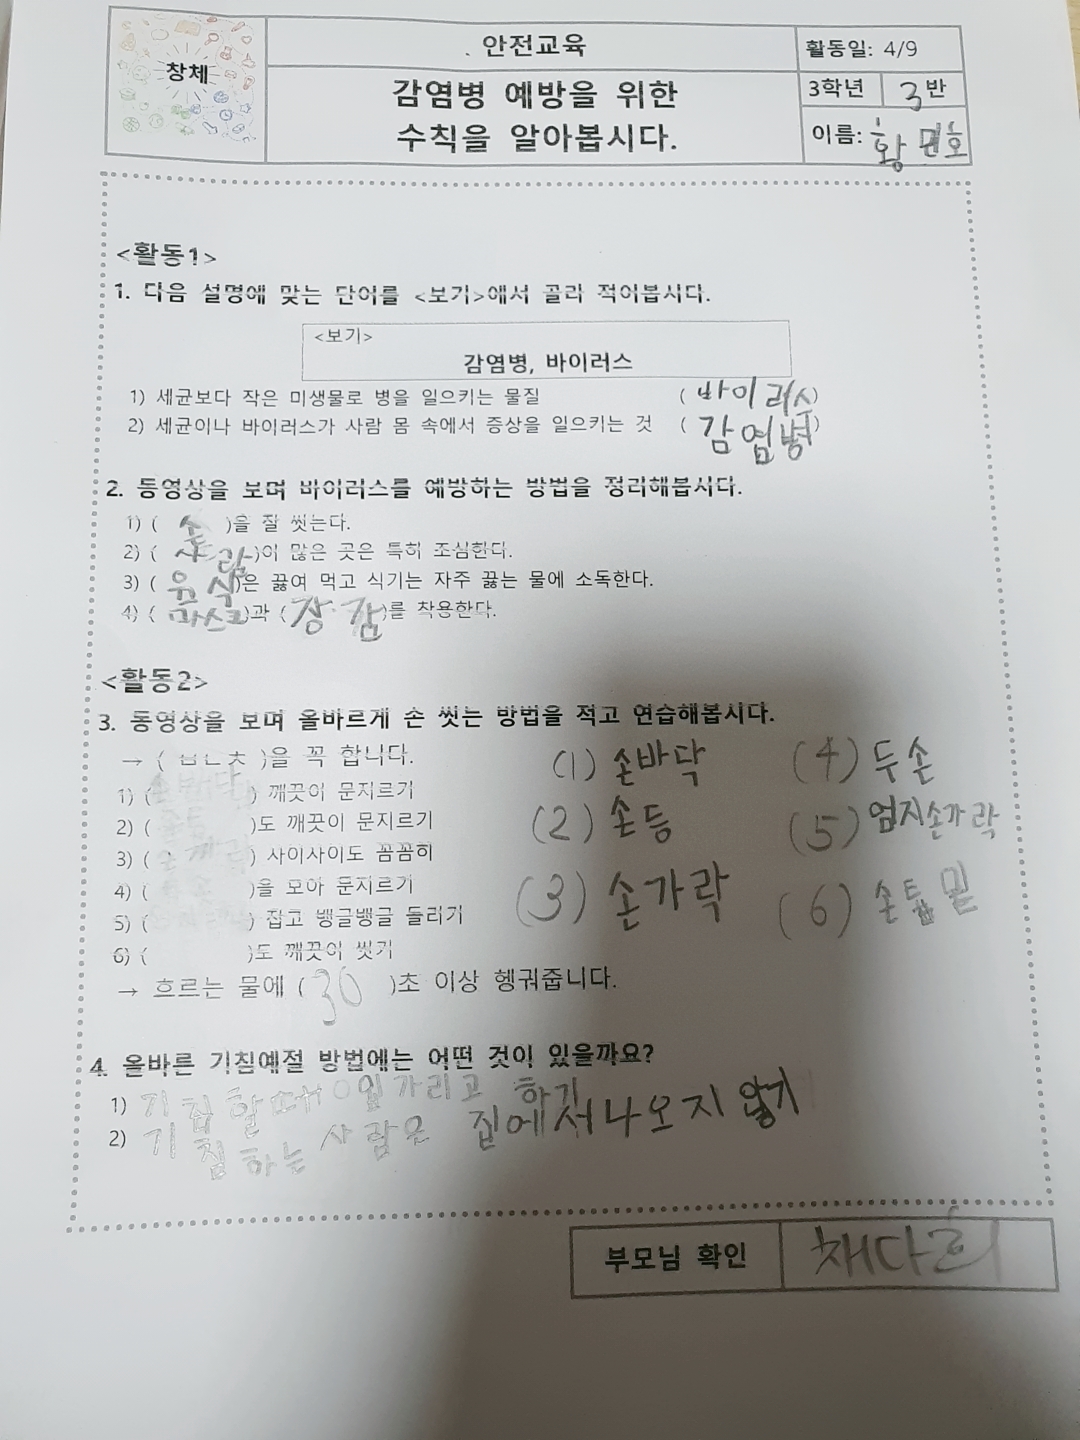 창체
. 안전교육
활동일: 4/9
감염병 예방을 위한
수칙을 알아봅시다.
3학년 3반
이름: 황민호
<활동1>
1. 다음 설명에 맞는 단어를 <보기>에서 골라 적어봅시다.
<보기>
감염병, 바이러스
1) 세균보다 작은 미생물로 병을 일으키는 물질 ( 바이러스 )
2) 세균이나 바이러스가 사람 몸 속에서 증상을 일으키는 것 ( 감염병 )
2. 동영상을 보며 바이러스를 예방하는 방법을 정리해봅시다.
1) ( 손 )을 잘 씻는다.
2) ( 사람 )이 많은 곳은 특히 조심한다.
3) ( 음식 )은 끓여 먹고 식기는 자주 끓는 물에 소독한다.
4) ( 마스크 )과 ( 장갑 )를 착용한다.
<활동2>
3. 동영상을 보며 올바르게 손 씻는 방법을 적고 연습해봅시다.
→ ( ㅂㄴㅊ )을 꼭 합니다.
1) ( 손바닥 ) 깨끗이 문지르기
2) ( 손등 )도 깨끗이 문지르기
3) ( ) 사이사이도 꼼꼼히
4) ( )을 모아 문지르기
5) ( ) 잡고 뱅글뱅글 돌리기
6) ( )도 깨끗이 씻기
(1) 손바닥
(2) 손등
(3) 손가락
(4) 두손
(5) 엄지손가락
(6) 손톱밑
→ 흐르는 물에 ( 30 )초 이상 헹궈줍니다.
4. 올바른 기침예절 방법에는 어떤 것이 있을까요?
1) 기침할때 입가리고 하기
2) 기침하는 사람은 집에서 나오지 않기
부모님 확인
채다희